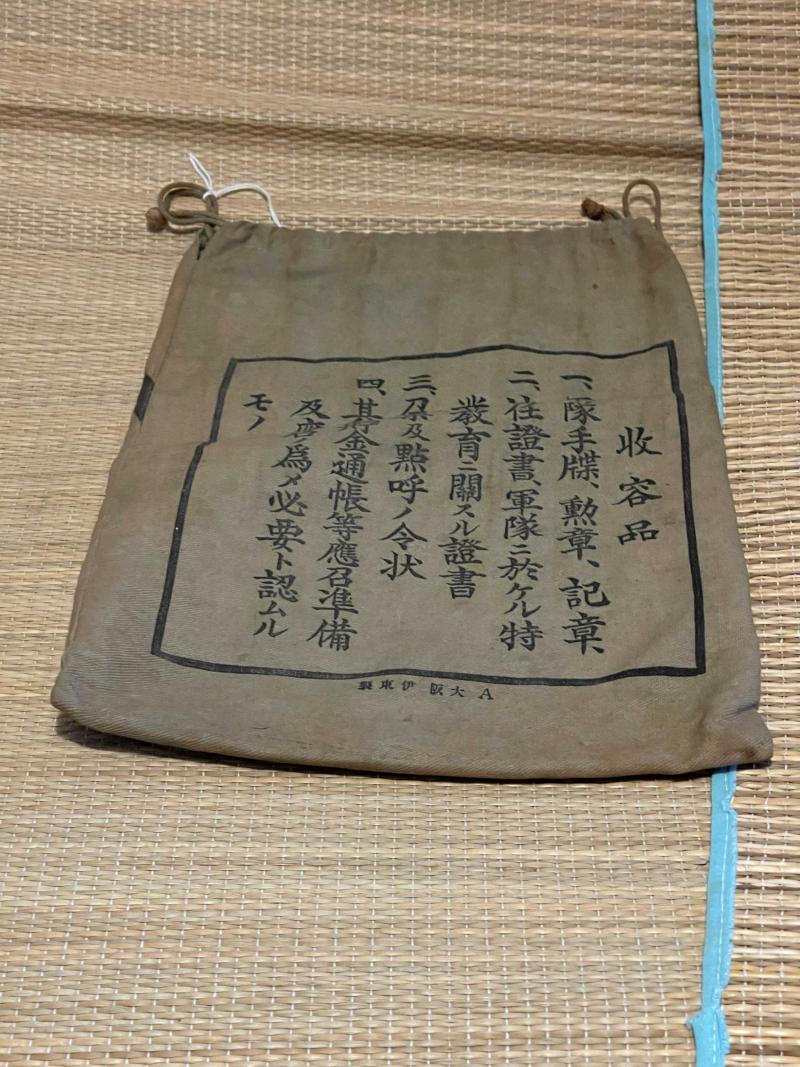 收容品
一、隊手牒、勲章、記章、
二、任證書、軍隊ニ於ケル特
教育ニ關スル證書
三、及點呼ノ令状
四、其金通帳等應召準備
及爲メ必要ト認ムル
モノ
A 大阪 伊東製